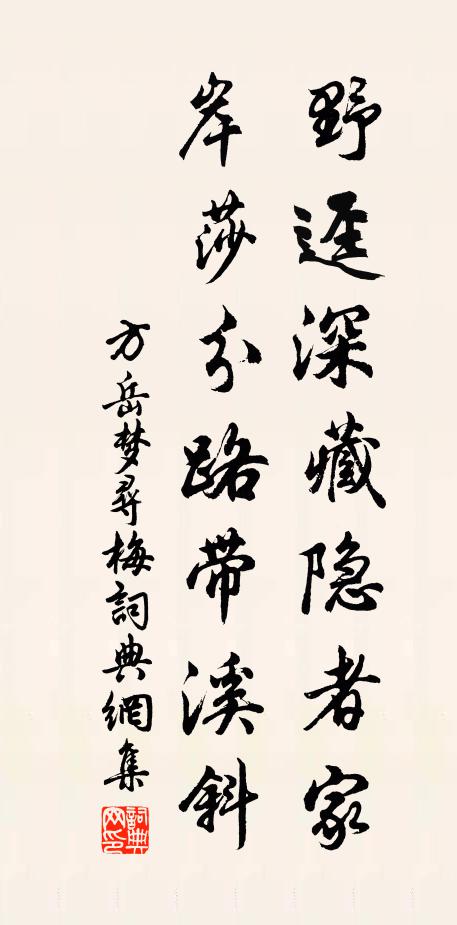 野逕深藏隐者家
岸莎分路带溪斜
方岳梦尋梅詞典網集
詞典网印